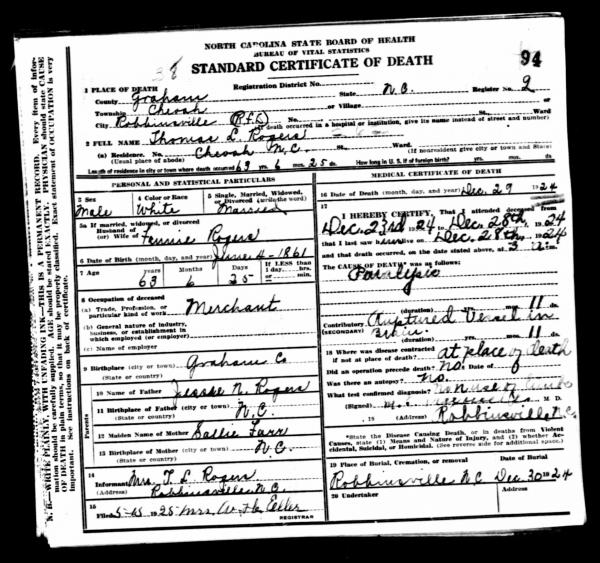 NORTH CAROLINA STATE BOARD OF HEALTH
BUREAU OF VITAL STATISTICS
STANDARD CERTIFICATE OF DEATH
94
1 PLACE OF DEATH
Registration District No.
County Graham State N.C. Register No. 2
Township Cheoah or Village
City Robbinsville (R.F.D.) No. St. Ward
(If death occurred in a hospital or institution, give its name instead of street and number)
2 FULL NAME Thomas L. Rogers
(a) Residence. No. Cheoah N.C. St. Ward
(Usual place of abode) (If nonresident give city or town and State)
Length of residence in city or town where death occurred 63 yrs. 6 mos. 25 ds. How long in U. S. if of foreign birth? yrs. mos. ds.
PERSONAL AND STATISTICAL PARTICULARS
3 Sex
Male
4 Color or Race
White
5 Single, Married, Widowed, or Divorced (write the word)
Married
5a If married, widowed, or divorced
Husband of
(or) Wife of Fannie Rogers
6 Date of Birth (month, day, and year) June 4 - 1861
7 Age years Months Days If LESS than
1 day, hrs.
or min.
63 6 25
8 Occupation of deceased
(a) Trade, Profession, or
particular kind of work Merchant
(b) General nature of industry,
business, or establishment in
which employed (or employer)
(c) Name of employer
9 Birthplace (city or town) Graham Co
(State or country)
Parents
10 Name of Father Jessie N. Rogers
11 Birthplace of Father (city or town) N.C.
(State or country)
12 Maiden Name of Mother Sallie Farr
13 Birthplace of Mother (city or town) N.C.
(State or country)
14
Informant Mrs. T. L. Rogers
(Address) Robbinsville N.C.
15
Filed 1925 Mrs. W. H.
REGISTRAR
MEDICAL CERTIFICATE OF DEATH
16 Date of Death (month, day, and year) Dec. 29 1924
17
I HEREBY CERTIFY, That I attended deceased from
Dec. 23rd 1924 to Dec. 28th, 1924
that I last saw him alive on Dec. 28th, 1924
and that death occurred, on the date stated above, at 3 m.
The CAUSE OF DEATH* was as follows:
Paralysis
(duration) yrs. mos. 11 ds.
Contributory Ruptured Vessel in
(SECONDARY) Brain
(duration) yrs. mos. 11 ds.
18 Where was disease contracted
if not at place of death? at place of death
Did an operation precede death? No. Date of
Was there an autopsy? No.
What test confirmed diagnosis?
(Signed) M. D.
, 19 (Address) Robbinsville N.C.
*State the Disease Causing Death, or in deaths from Violent
Causes, state (1) Means and Nature of Injury, and (2) whether Accidental, Suicidal, or Homicidal. (See reverse side for additional space.)
19 Place of Burial, Cremation, or removal Date of Burial
Robbinsville N.C. Dec 30 1924
20 Undertaker Address
N. B.—WRITE PLAINLY, WITH UNFADING INK—THIS IS A PERMANENT RECORD. Every item of information should be carefully supplied. AGE should be stated EXACTLY. PHYSICIAN should state CAUSE
OF DEATH in plain terms, so that it may be properly classified. Exact statement of OCCUPATION is very
important. See instructions on back of certificate.